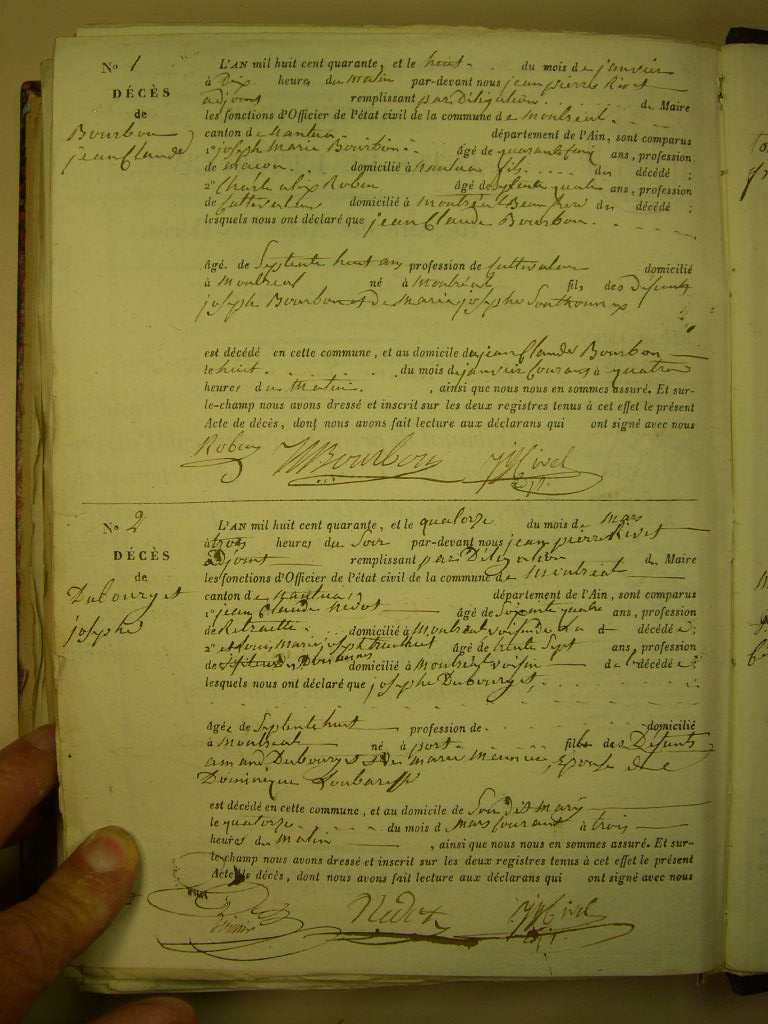 No 1
DÉCÈS
de
Bourbon
jean Claude
L'AN mil huit cent quarante, et le huit du mois de janvier
à Dix heures du matin par-devant nous jean pierre Rivet
adjoint remplissant par Délégation du Maire
les fonctions d'Officier de l'état civil de la commune de Montréal
canton de Nantua département de l'Ain, sont comparus
1º joseph Marie Bourbon âgé de quarante cinq ans, profession
de maçon domicilié à Nantua fils du décédé ;
2º Charle alix Robin âgé de septente quatre ans, profession
de cultivateur domicilié à Montréal Beau frère du décédé ;
lesquels nous ont déclaré que jean Claude Bourbon
âgé de Septente huit ans profession de cultivateur domicilié
à Montréal né à Montréal fils des Défunts
joseph Bourbon et De Marie josephe
est décédé en cette commune, et au domicile de jean Claude Bourbon
le huit du mois de janvier courant à quatre
heures du Matin , ainsi que nous nous en sommes assuré. Et sur-
le-champ nous avons dressé et inscrit sur les deux registres tenus à cet effet le présent
Acte de décès, dont nous avons fait lecture aux déclarans qui ont signé avec nous
Robin Bourbon
No 2
DÉCÈS
de
Dubourget
josephe
L'AN mil huit cent quarante, et le quatorze du mois de Mars
à trois heures du Soir par-devant nous jean pierre Rivet
adjoint remplissant par Délégation du Maire
les fonctions d'Officier de l'état civil de la commune de Montréal
canton de Nantua département de l'Ain, sont comparus
1º jean Claude Nedot âgé de Soixente quatre ans, profession
de Retraitté domicilié à Montréal voisin de La décédée ;
2º Louis Marie joseph âgé de trente Sept ans, profession
de domicilié à Montréal voisin de la décédée ;
lesquels nous ont déclaré que josephe Dubourget,
âgée de Septente huit profession de domicilié
à Montréal né à port fille des Défunts
amand Dubourget et De marie Meunier, Epouse de
Dominique
est décédé en cette commune, et au domicile de Son dit Mary
le quatorze du mois de Mars courant à trois
heures du matin , ainsi que nous nous en sommes assuré. Et sur-
le-champ nous avons dressé et inscrit sur les deux registres tenus à cet effet le présent
Acte de décès, dont nous avons fait lecture aux déclarans qui ont signé avec nous
Nedot